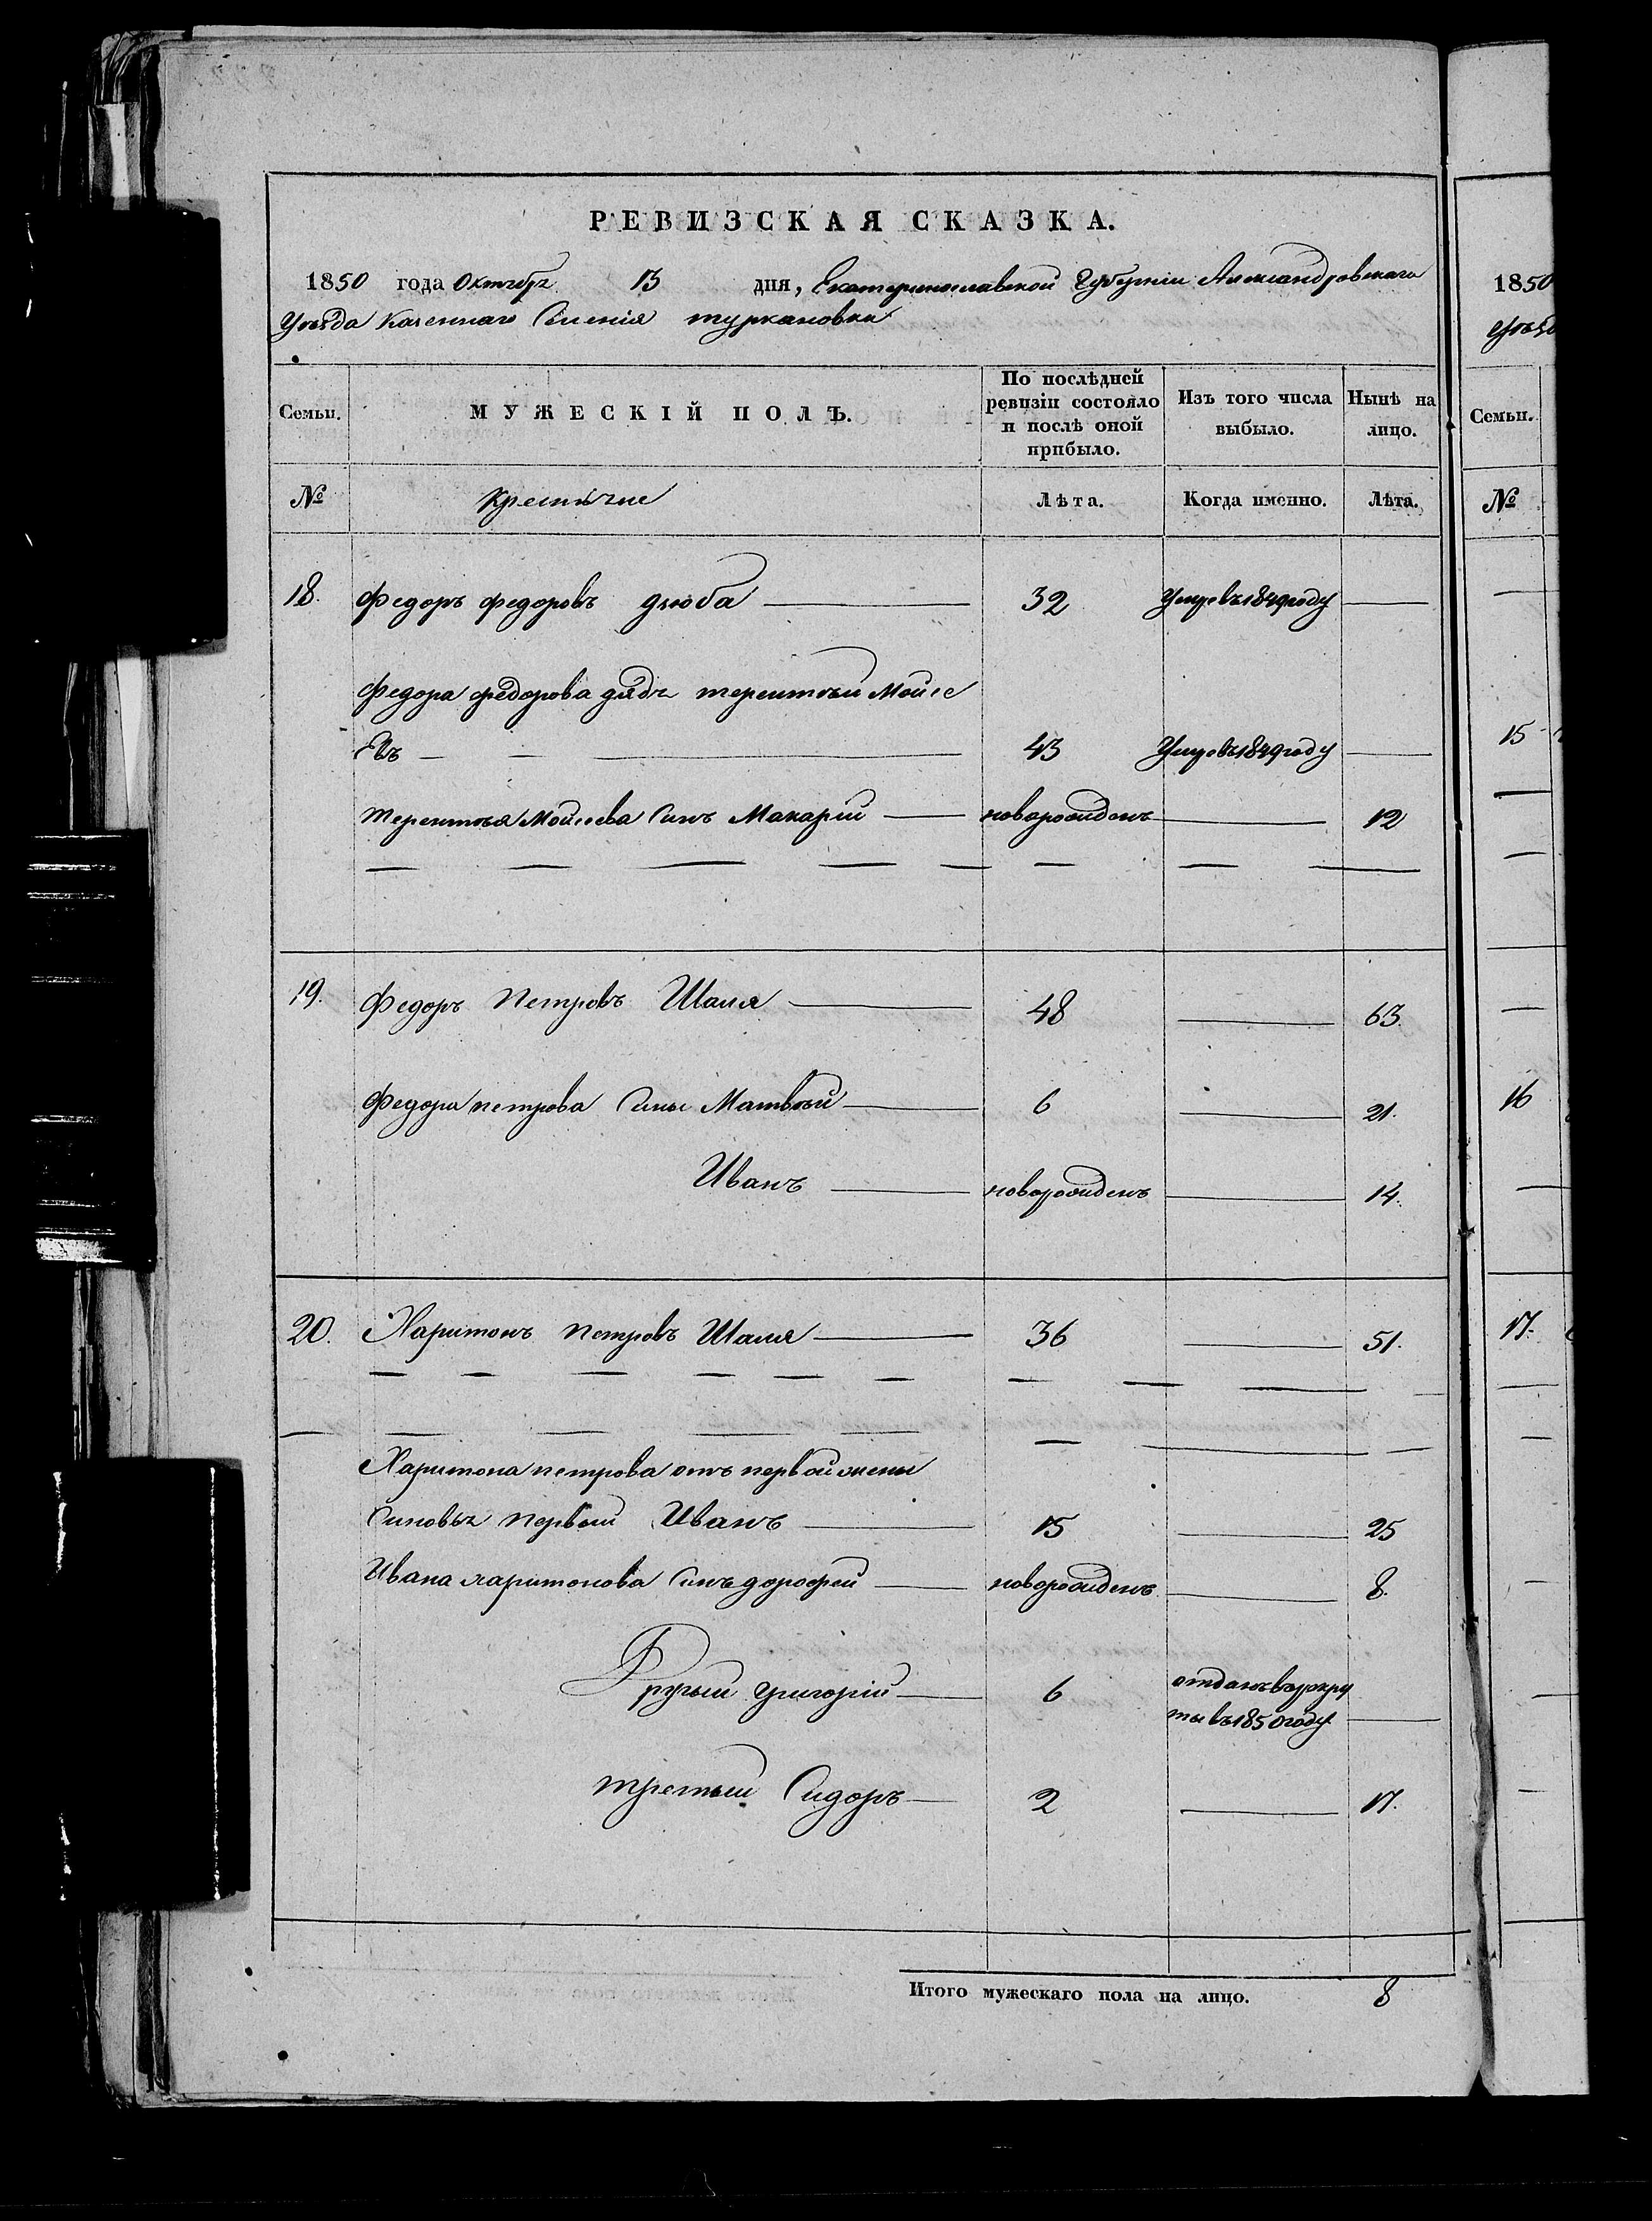 РЕВИЗСКАЯ СКАЗКА.
1850 года Октября 13 дня, Екатеринославской Губерніи Александровскаго
Уѣзда Казеннаго Селенія туркановки
Семьи. МУЖЕСКІЙ ПОЛЪ. По послѣдней ревизіи состояло и послѣ оной прибыло. Изъ того числа выбыло. Нынѣ на лицо.
№ Крестьяне Лѣта. Когда именно. Лѣта.
18. Федоръ федоровъ дзюба 32 Умре въ 1849 году
Федора федорова дядя терентъи Мойсе
Евъ 43 Умре въ 1849 году
терентъя Мойсеева Синъ Макарій новорожденъ 12
19. Федоръ Петровъ Шаля 48 63.
Федора петрова Сины Матвѣй 6 21.
Иванъ новорожденъ 14.
20. Харитонъ Петровъ Шаля 36 51.
Харитона петрова отъ первой жены
Синовья Первый Иванъ 15 25
Ивана харитонова Синъ дорофей новорожденъ 8.
Другый Григорій 6 отданъ въ рекру
ты въ 1850 году
третый Сидоръ 2 17.
Итого мужескаго пола на лицо. 8
1850
Уѣзд
Семьи.
№
15
16
17.